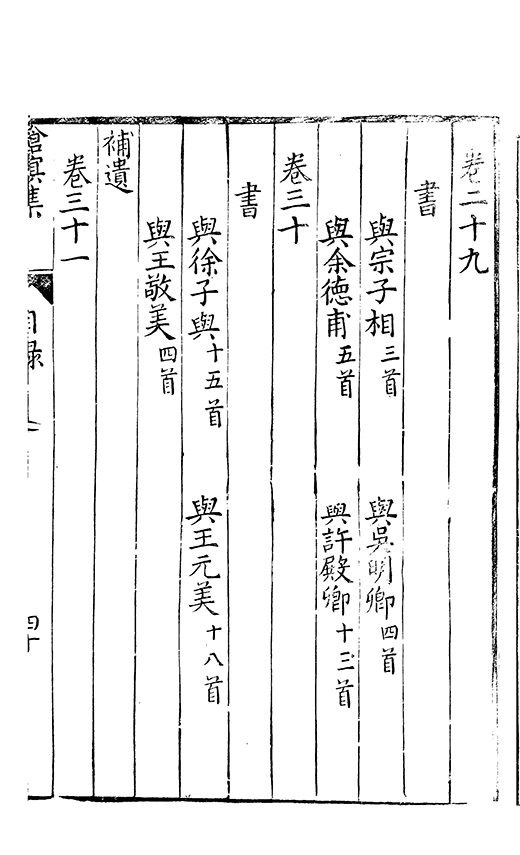 卷二十九
書
與宗子相三首 與吳明卿四首
與余德甫五首 與許殿卿十三首
卷三十
書
與徐子與十五首 與王元美十八首
與王敬美四首
補遺
卷三十一
滄溟集 目錄 四十